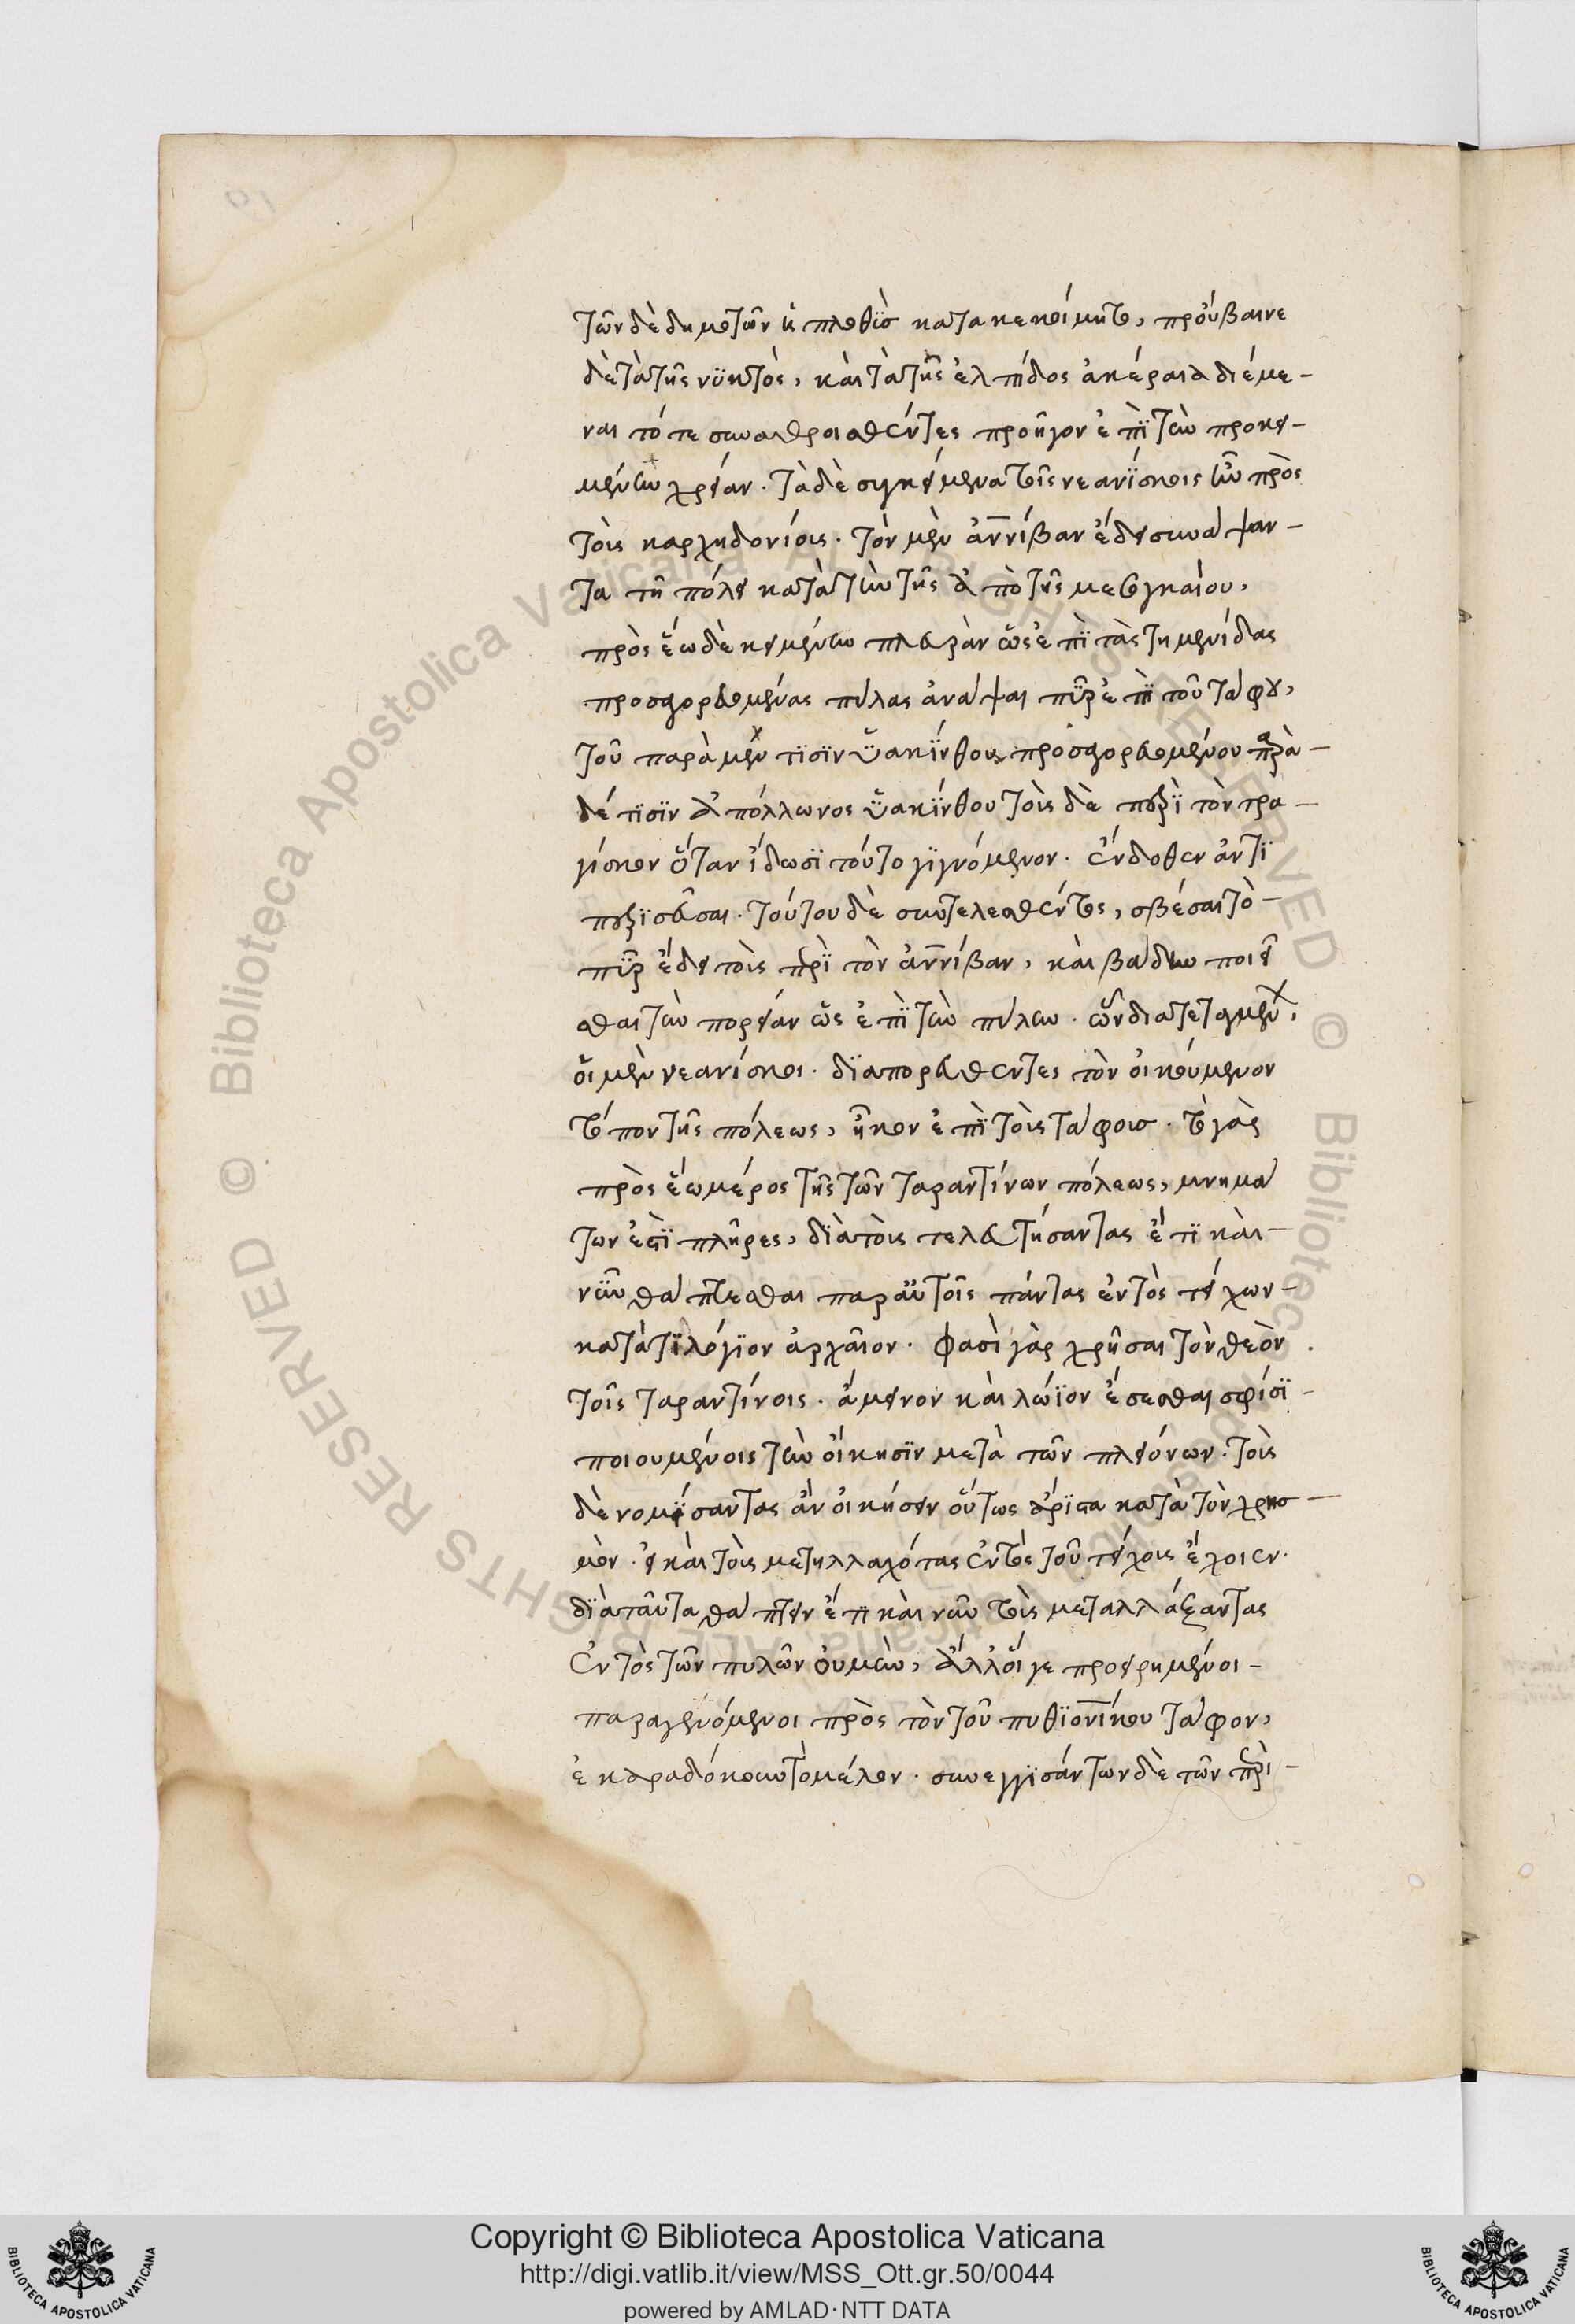 τῶν δὲ δημοτῶν ἡ πλοθὶσ κατακεκοίμητο, προύβαινε
δὲ τὰ τῆς νϋκτὸς, καὶ τὰ τῆς ἐλπίδος ἀκέραια διέμε-
ναι τότε συναθροισθέντες προῆγον ἐπὶ τὴν προκει-
μένην χρείαν. τὰ δὲ συγκείμενα τοῖς νεανίσκοις ἦν πρὸς
τοὺς καρχηδονίους. τὸν μὲν ἀννίβαν ἔδει συνάψαν-
τα τῇ πόλει κατὰ τὴν τῆς ἀπὸ τῆς μεσογκαίου,
πρὸς ἕω δὲ κειμένην πλευρὰν ὡς ἐπὶ τὰς τημενίδας
προσαγορευομένας πύλας ἀνάψαι πῦρ ἐπὶ τοῦ τάφου,
τοῦ παρὰ μέν τισὶν ὑακίνθου προσαγορευομένου παρὰ-
δέ τισὶν ἀπόλλωνος ὑακίνθου τοὺς δὲ περὶ τὸν τρα-
γίσκον ὅταν ἴδωσι τοῦτο γιγνόμενον. ἔνδοθεν ἀντι
πυρϊσεῦσαι. τούτου δὲ συντελεσθέντος, σβέσαι τὸ-
πῦρ ἔδει τοὺς περὶ τὸν ἀννίβαν, καὶ βάδην ποιεῖ
σθαι τὴν πορείαν ὡς ἐπὶ τὴν πύλην. ὧν διατεταγμένων,
οἱ μὲν νεανίσκοι. διαπορευθέντες τὸν οἰκούμενον
τόπον τῆς πόλεως, ἧκον ἐπὶ τοὺς τάφουσ. τὸ γὰρ
πρὸς ἕω μέρος τῆς τῶν ταραντίνων πόλεως, μνημά
των ἐστὶ πλῆρες, διὰ τοὺς τελευτήσαντας ἔτι καὶ-
νῦν θάπτεσθαι παρ αὐτοῖς πάντας ἐντὸς τειχων-
κατὰ τὶ λόγϊον ἀρχαῖον. φασὶ γὰρ χρῆσαι τὸν θεὸν
τοῖς ταραντίνοις. ἄμεινον καὶ λώϊον ἔσεσθαι σφίσϊ-
ποιουμένοις τὴν οἴκησϊν μετὰ τῶν πλειόνων. τοὺς
δὲ νομίσαντας ἂν οἰκήσειν οὕτως ἄριστα κατὰ τὸν χρησ-
μὸν. εἰ καὶ τοὺς μετηλλαχότας ἐντὸς τοῦ τείχους ἔχοιεν.
διὰ ταῦτα θάπτειν ἔτι καὶ νῦν τοὺς μεταλλάξαντας
ἐντὸς τῶν πυλῶν οὐ μὴν, ἀλλ οἵ γε προειρημένοι-
παραγενόμενοι πρὸς τὸν τοῦ πυθϊονίκου τάφον,
ἐκαραδόκουν τὸ μέλον. συνεγγϊσάντων δὲ τῶν περὶ-
Copyright © Biblioteca Apostolica Vaticana
http://digi.vatlib.it/view/MSS_Ott.gr.50/0044
powered by AMLAD·NTT DATA